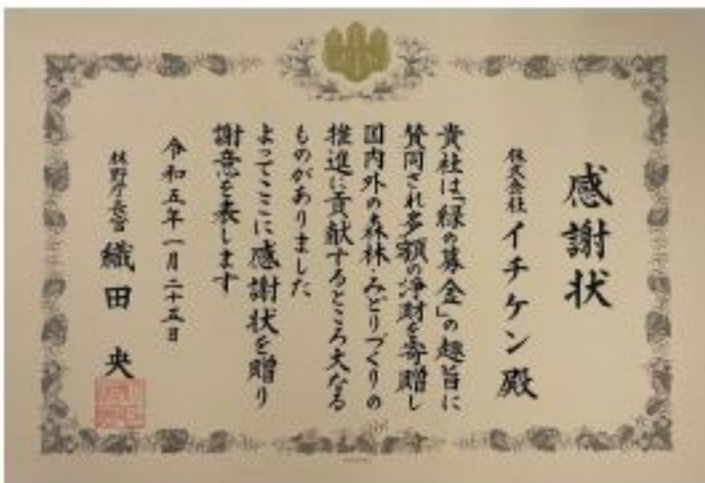 感謝状
株式会社 イチケン殿
貴社は「緑の募金」の趣旨に
賛同され多額の浄財を寄贈し
国内外の森林・みどりづくりの
推進に貢献するところ大なる
ものがありました
よってここに感謝状を贈り
謝意を表します
令和五年一月二十五日
林野庁長官 織田 央